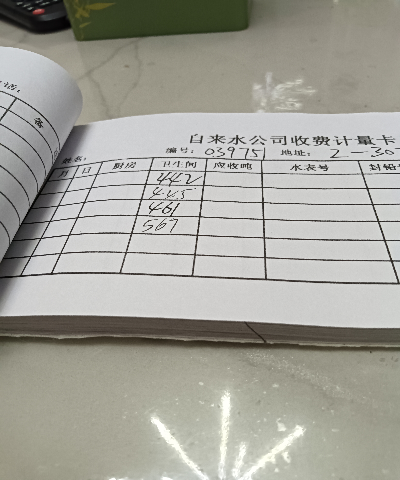 自来水公司收费计量卡
编号: 039751 地址: 2-30
姓名:
月 日 厨房 卫生间 应收吨 水表号 封铅号
442
445
461
567